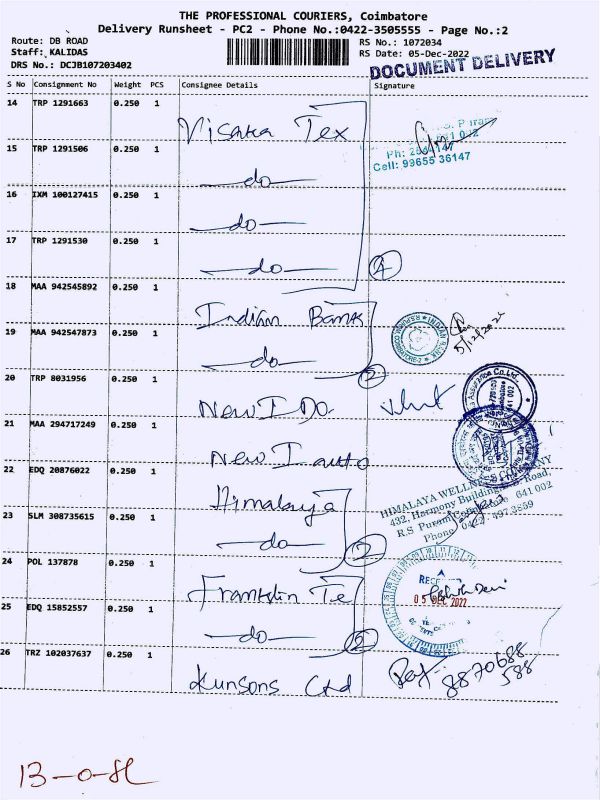 THE PROFESSIONAL COURIERS, Coimbatore
Delivery Runsheet - PC2 - Phone No.:0422-3505555 - Page No.:2
Route: DB ROAD RS No.: 1072034
Staff: KALIDAS RS Date: 05-Dec-2022
DRS No.: DCJB107203402 DOCUMENT DELIVERY
S No Consignment No Weight PCS Consignee Details Signature
14 TRP 1291663 0.250 1 Visaka Tex
15 TRP 1291506 0.250 1 do
Cell: 99655 36147
16 IXM 100127415 0.250 1 do
17 TRP 1291530 0.250 1 do 4
18 MAA 942545892 0.250 1 Indian Bank
5/12/2022
19 MAA 942547873 0.250 1 do 2
20 TRP 8031956 0.250 1 New I Do
21 MAA 294717249 0.250 1 New I auto
22 EDQ 20876022 0.250 1 Himalaya
HIMALAYA WELLNESS COMPANY
432, Harmony Building, Road,
R.S Puram, Coimbatore 641 002
Phone
23 SLM 308735615 0.250 1 do 2
24 POL 137878 0.250 1 Franklin Te
05 DEC 2022
25 EDQ 15852557 0.250 1 do 2
26 TRZ 102037637 0.250 1 Kunsons Ltd
8870688
588
13-0-82